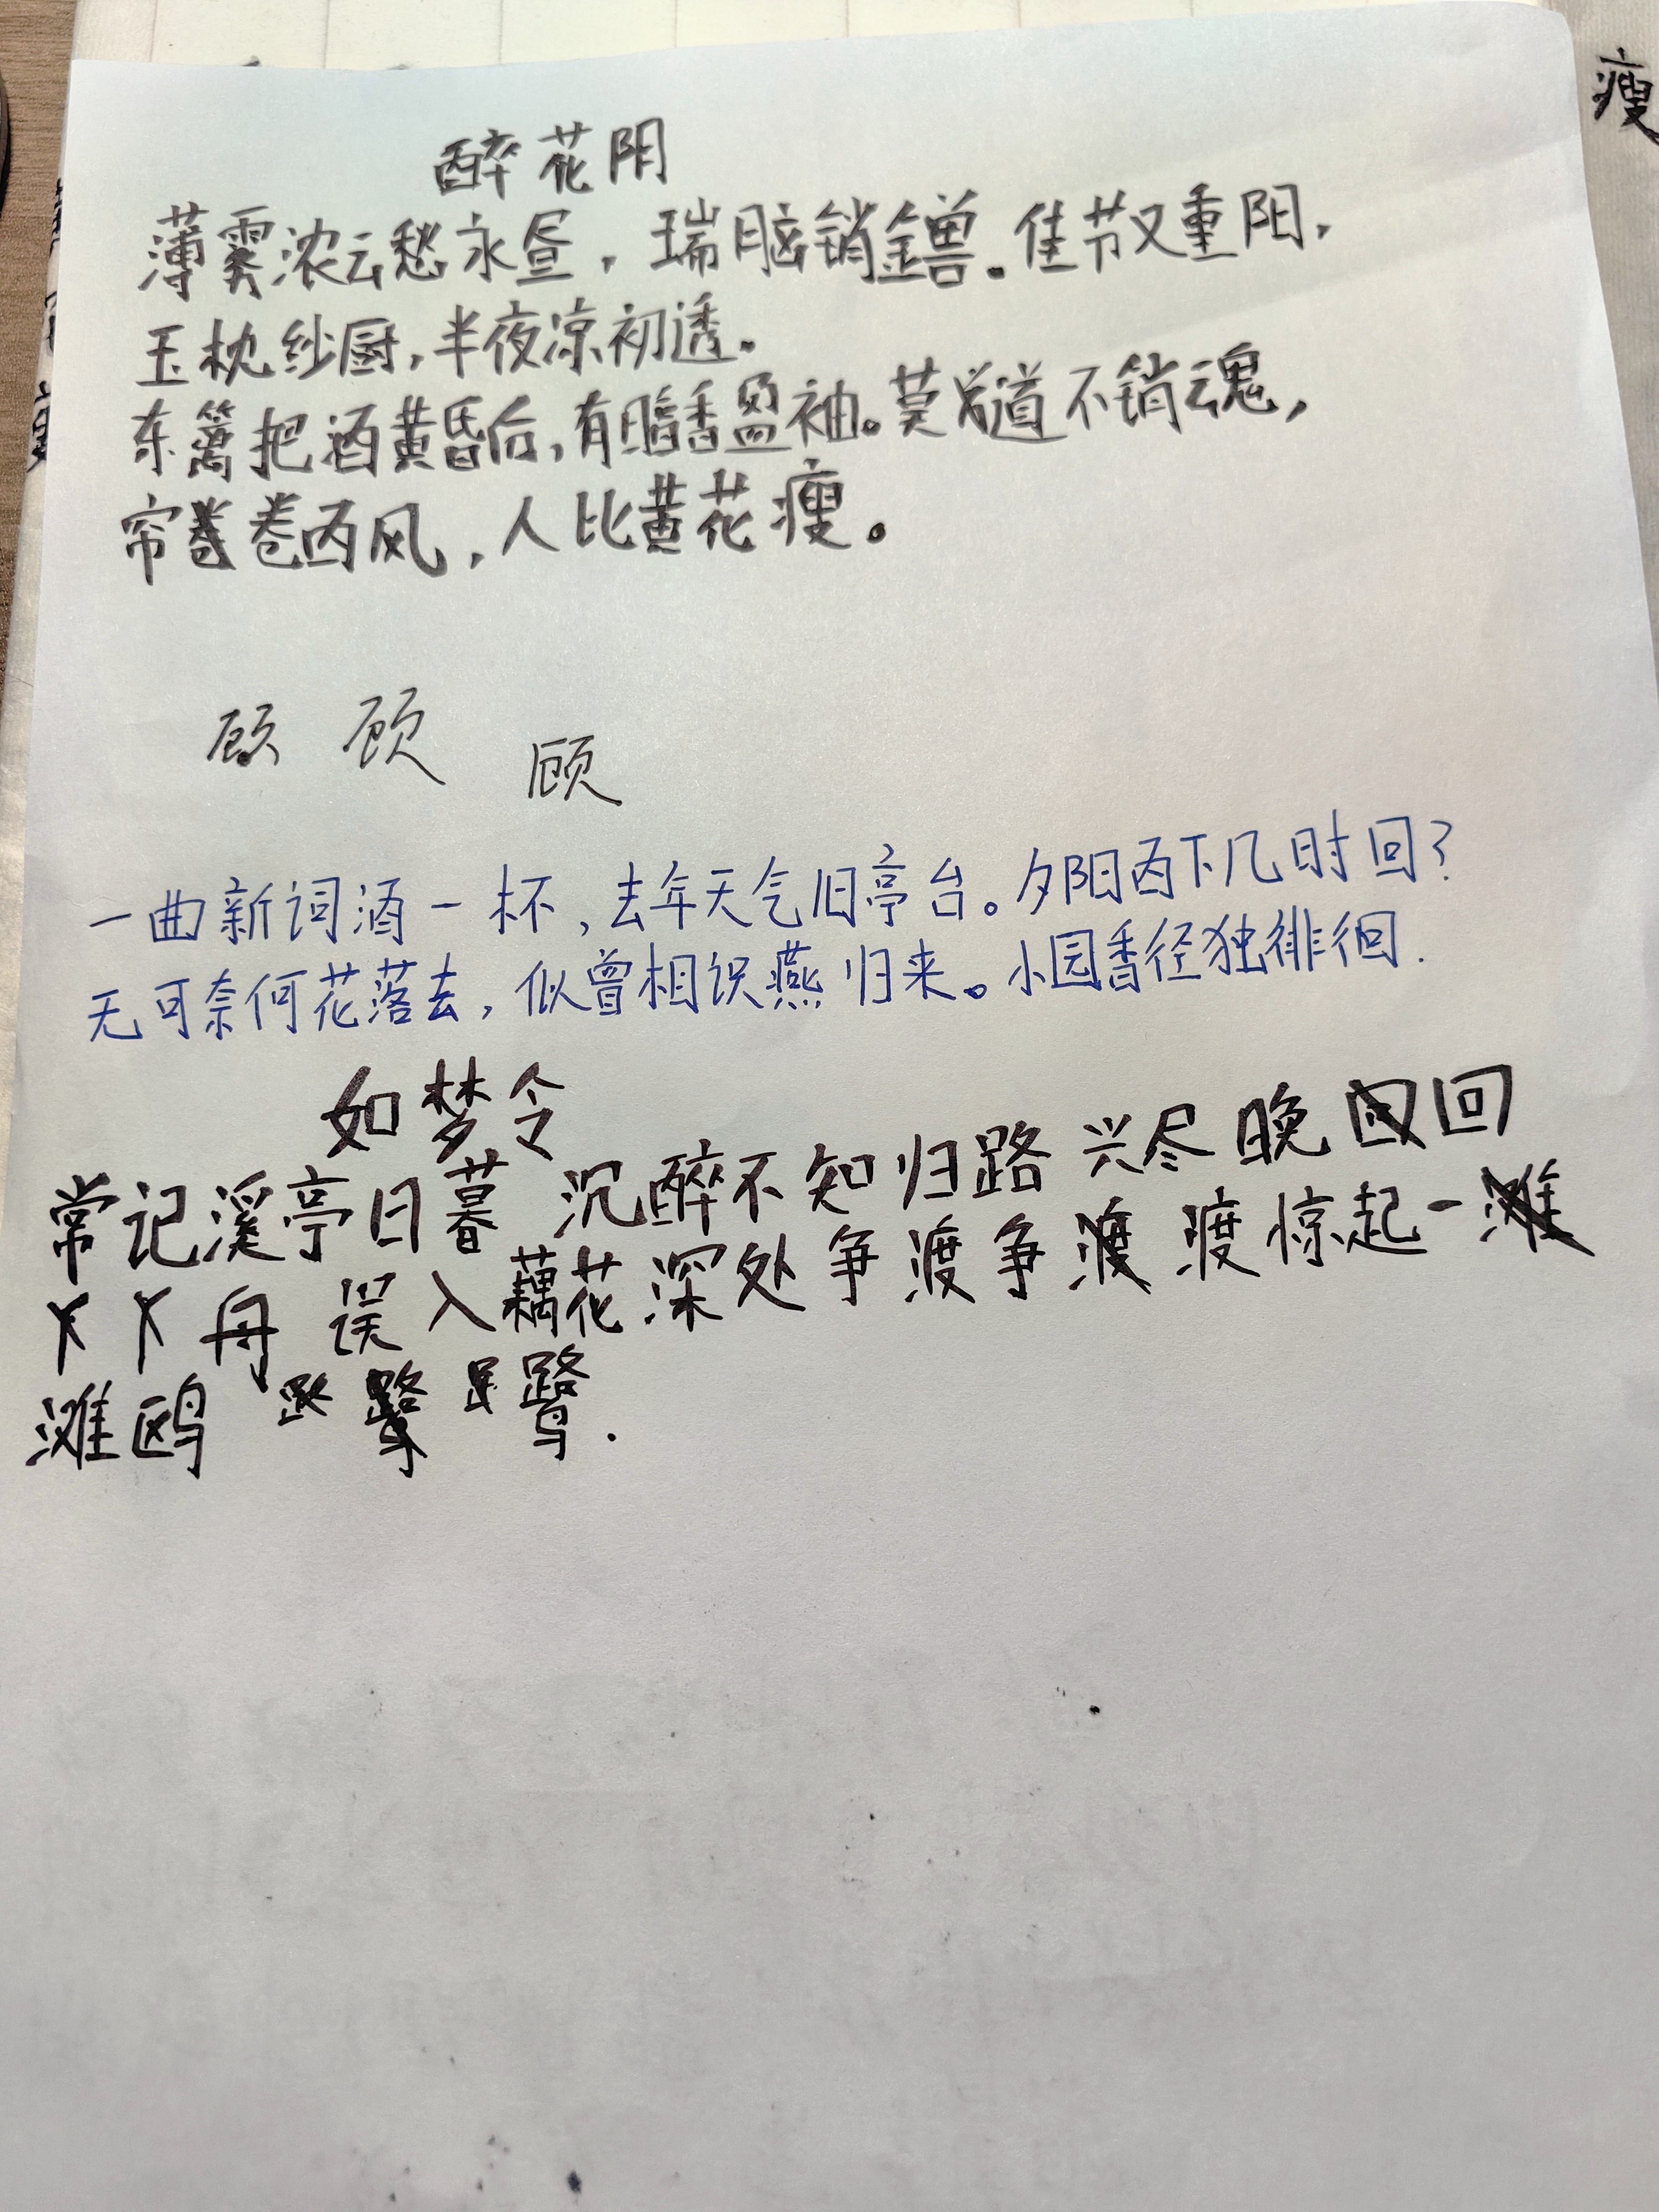 瘦
醉花阴
薄雾浓云愁永昼，瑞脑销金兽。佳节又重阳，
玉枕纱厨，半夜凉初透。
东篱把酒黄昏后，有暗香盈袖。莫道不销魂，
帘卷西风，人比黄花瘦。
顾 顾 顾
一曲新词酒一杯，去年天气旧亭台。夕阳西下几时回？
无可奈何花落去，似曾相识燕归来。小园香径独徘徊.
如梦令
常记溪亭日暮 沉醉不知归路 兴尽晚回
舟 误入藕花深处 争渡争渡 惊起一
滩鸥鹭.